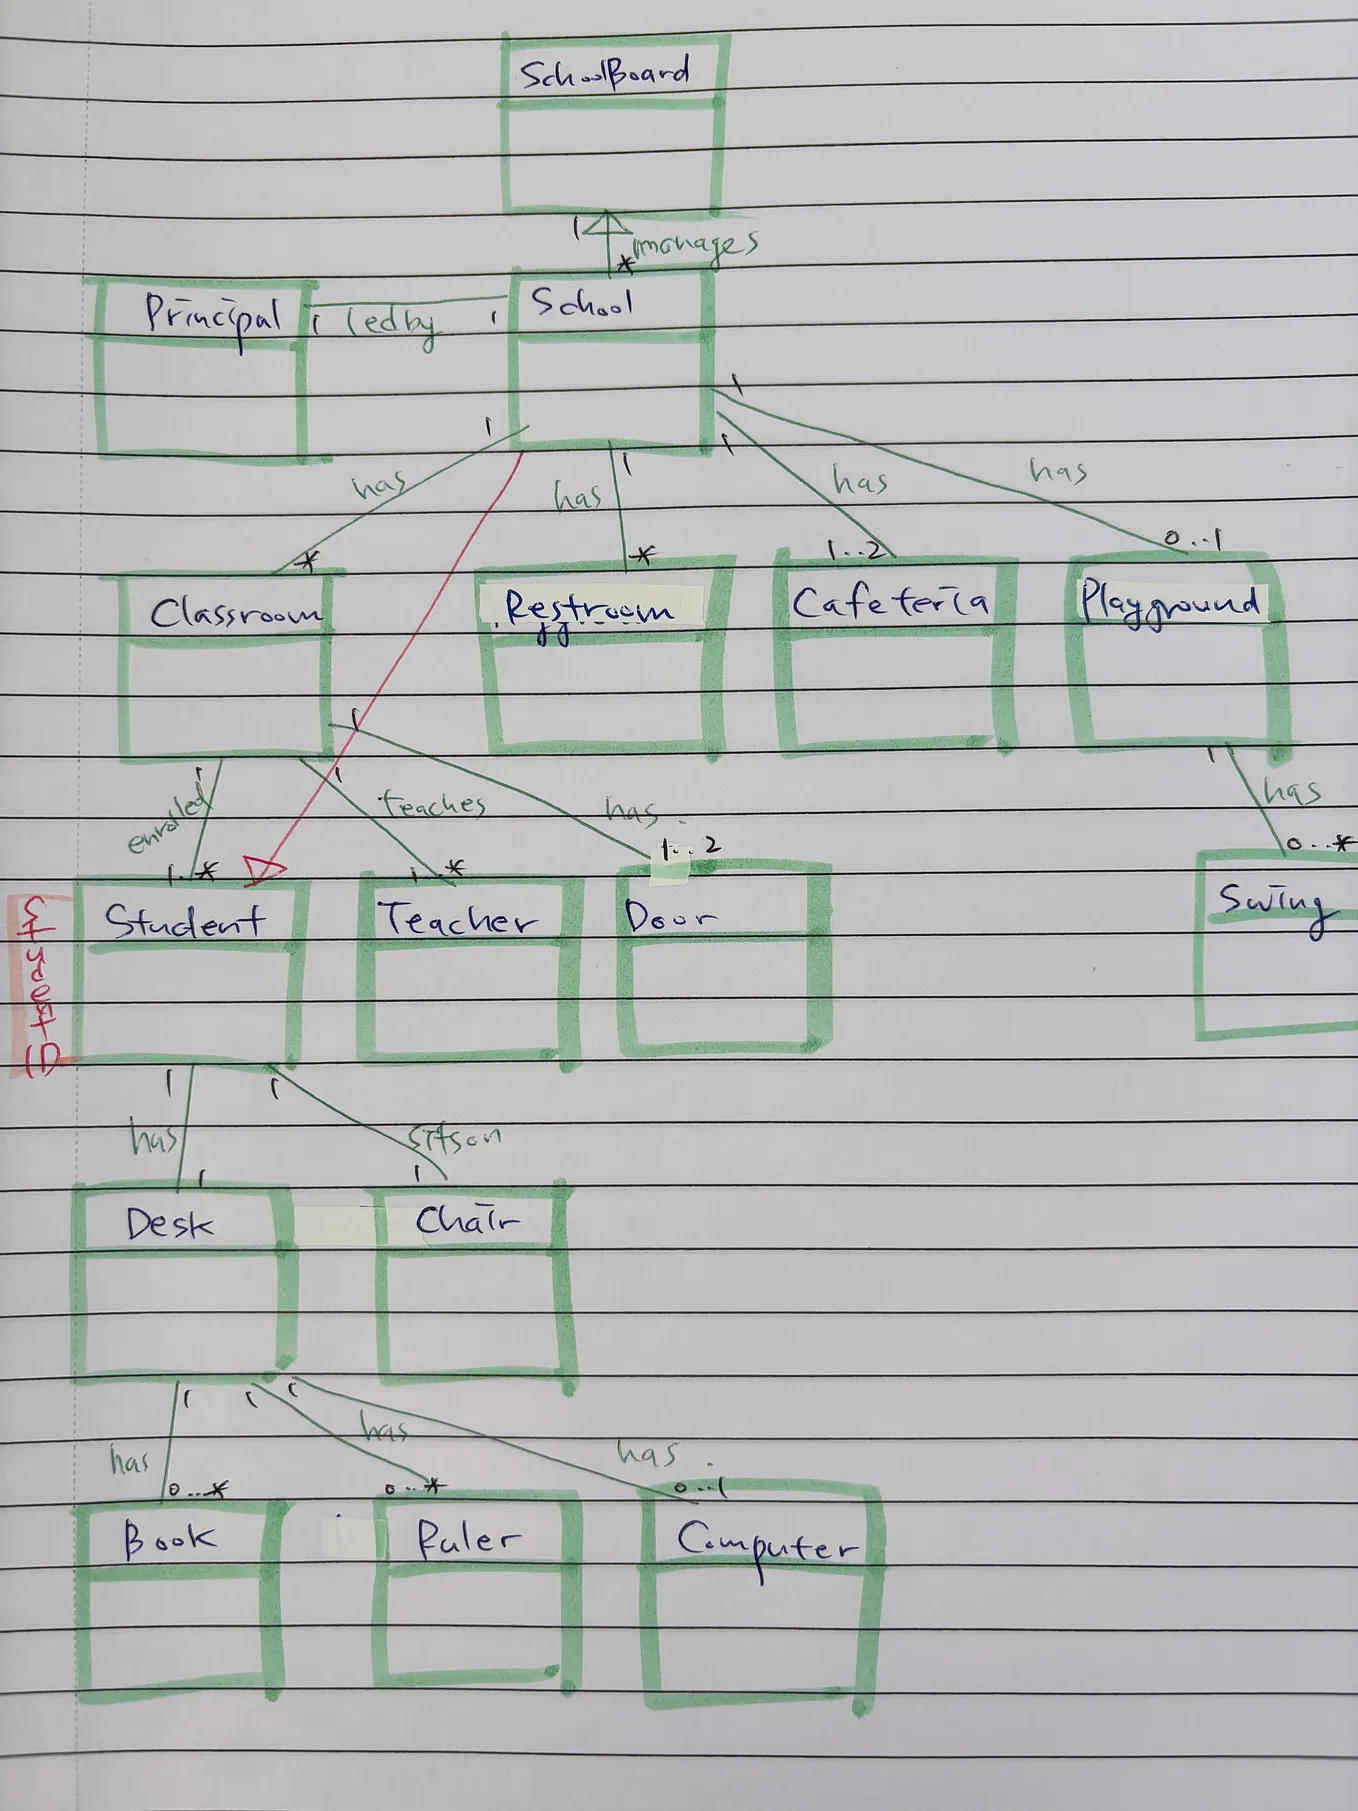 SchoolBoard
1
manages
*
Principal
1 ledby 1
School
1
1
1
1
has
has
has
has
*
*
1..2
0..1
Classroom
Restroom
Cafeteria
Playground
1
1
1
1
enrolled
teaches
has
has
1..*
1..*
1..2
0...*
Student
Teacher
Door
Swing
1
1
has
sitson
1
1
Desk
Chair
1
1
1
has
has
has
0...*
0...*
0...1
Book
Ruler
Computer